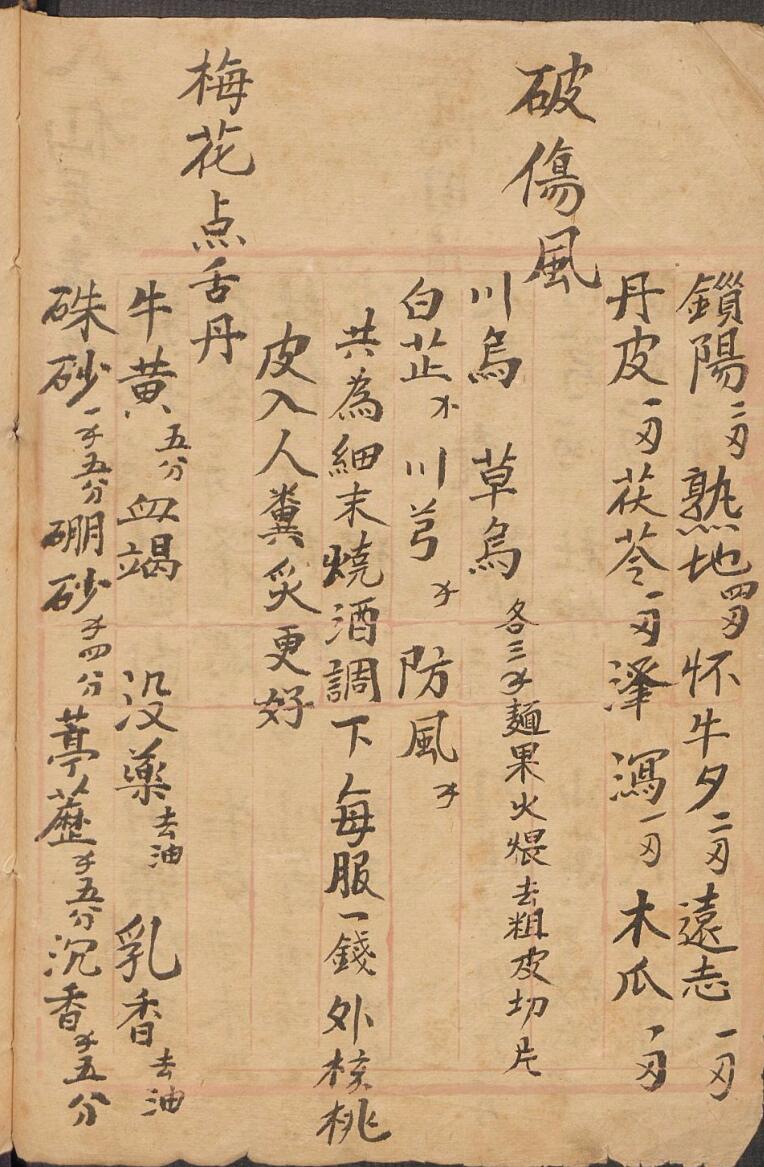 鎖陽二刄熟地四刄怀牛夕二刄遠志一刄
丹皮一刄茯苓一刄澤瀉一刄木瓜一刄
破傷風
川烏 草烏各三才麵果火煨去粗皮切片
白芷才川芎才防風才
共為細末燒酒調下每服一錢外核桃
皮入人糞灸更好
梅花点舌丹
牛黃五分血竭 没藥去油 乳香去油
硃砂一才五分硼砂才四分葶藶才五分沉香才五分